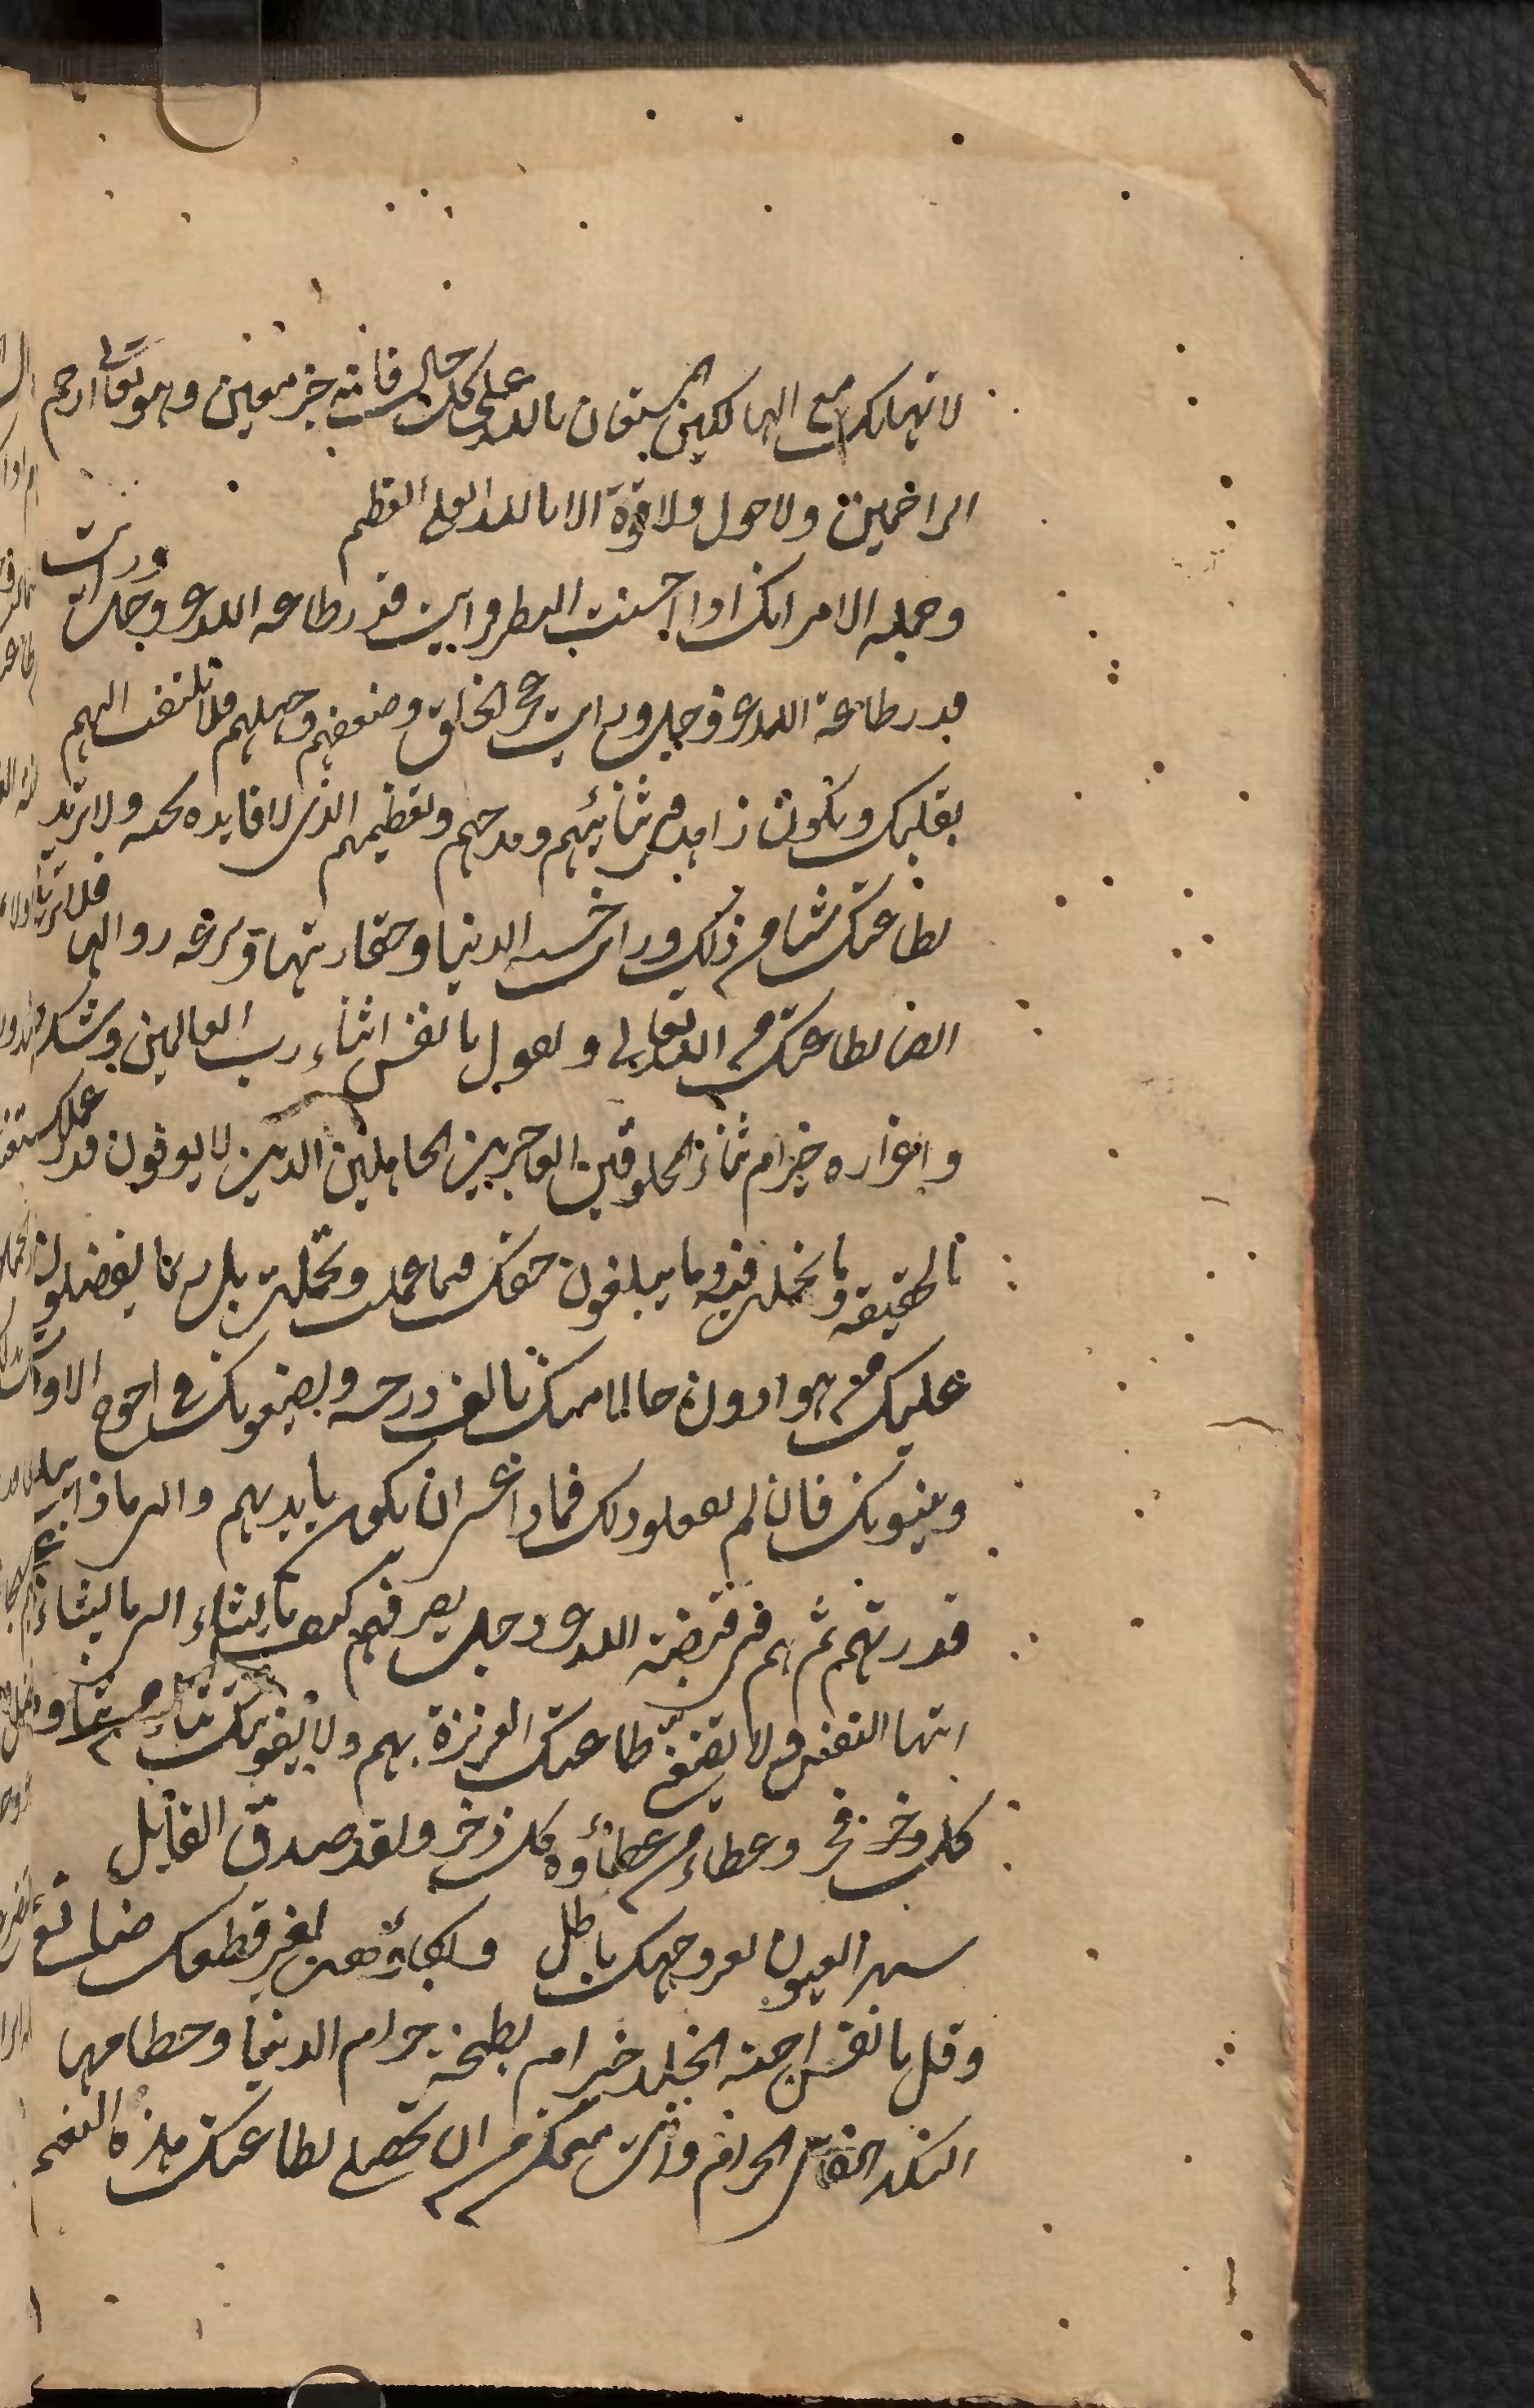 لا تهلك مع الهالكين المستعان بالله على كل حال فانه خير معين وهو تعالى ارحم
الراحمين ولا حول ولا قوة الا بالله العلى العظيم
وجمله الامر انك اذا احسنت النظر ورايت قدر طاعه الله عز وجل ورايت
قدر طاعة الله عز وجل ورايت عجز الخلق وضعفهم وجهلهم فلا تلتفت اليهم
بقلبك وتكون زاهدا فى ثنائهم ومدحهم وتعظيمهم الذى لا فايده تحته ولا تريد
بطاعتك شيا من ذلك ورايت خسه الدنيا وحقارتها وسرعه زوالها فلا تريدها
ايضا بطاعتك من الله تعالى وتقول يا نفس اثناء رب العالمين وشكره
واعزاره خير ام ثناء المخلوقين العاجزين الجاهلين الذين لا يعرفون قدر عملك
بالحقيقه وما تحملت فيه وما يبلغون حقك فيما عملت وتحملت بل ربما يفضلون
عليك من هو ادون حالا منك بالف درجه ويضيعونك فى احوج الاوقات
وينسونك فان لم يفعلوا ذلك فماذا عسى ان يكون بايديهم والى ماذا تبلغ
قدرتهم ثم هم فى قبضة الله عز وجل يصرفهم كيف يشاء الى ما يشاء
ايتها النفس ولا تضيعى طاعتك العزيزة بهم ولا يفوتك ثناء من ثناؤه
كل فخر وعطاء من عطاؤه كل ذخر ولقد صدق القايل
سهر العيون لغير وجهك باطل وبكاؤهن لغير قطعك ضائع
وقل يا نفس اجنة الخلد خير ام لطخة حرام الدنيا وحطامها
النكد الحرام وانت متمكن من ان تحصلى بطاعتك هذه النعم